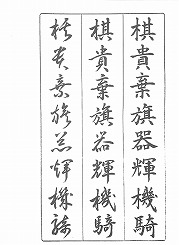 棋貴棄旗器輝機騎
棋貴棄旗器輝機騎
棋貴棄旗器輝機騎